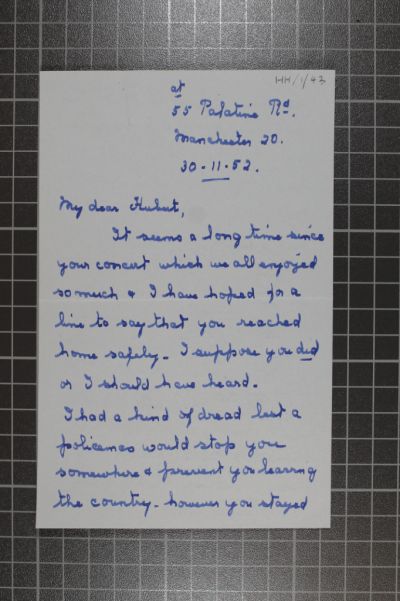 HH/1/43
at
55 Palatine Rd.
Manchester 20.
30-11-52.
My dear Hubert,
It seems a long time since
your concert which we all enjoyed
so much & I have hoped for a
line to say that you reached
home safely - I suppose you did
or I should have heard.
I had a kind of dread lest a
policeman would stop you
somewhere & prevent you leaving
the country - however you stayed